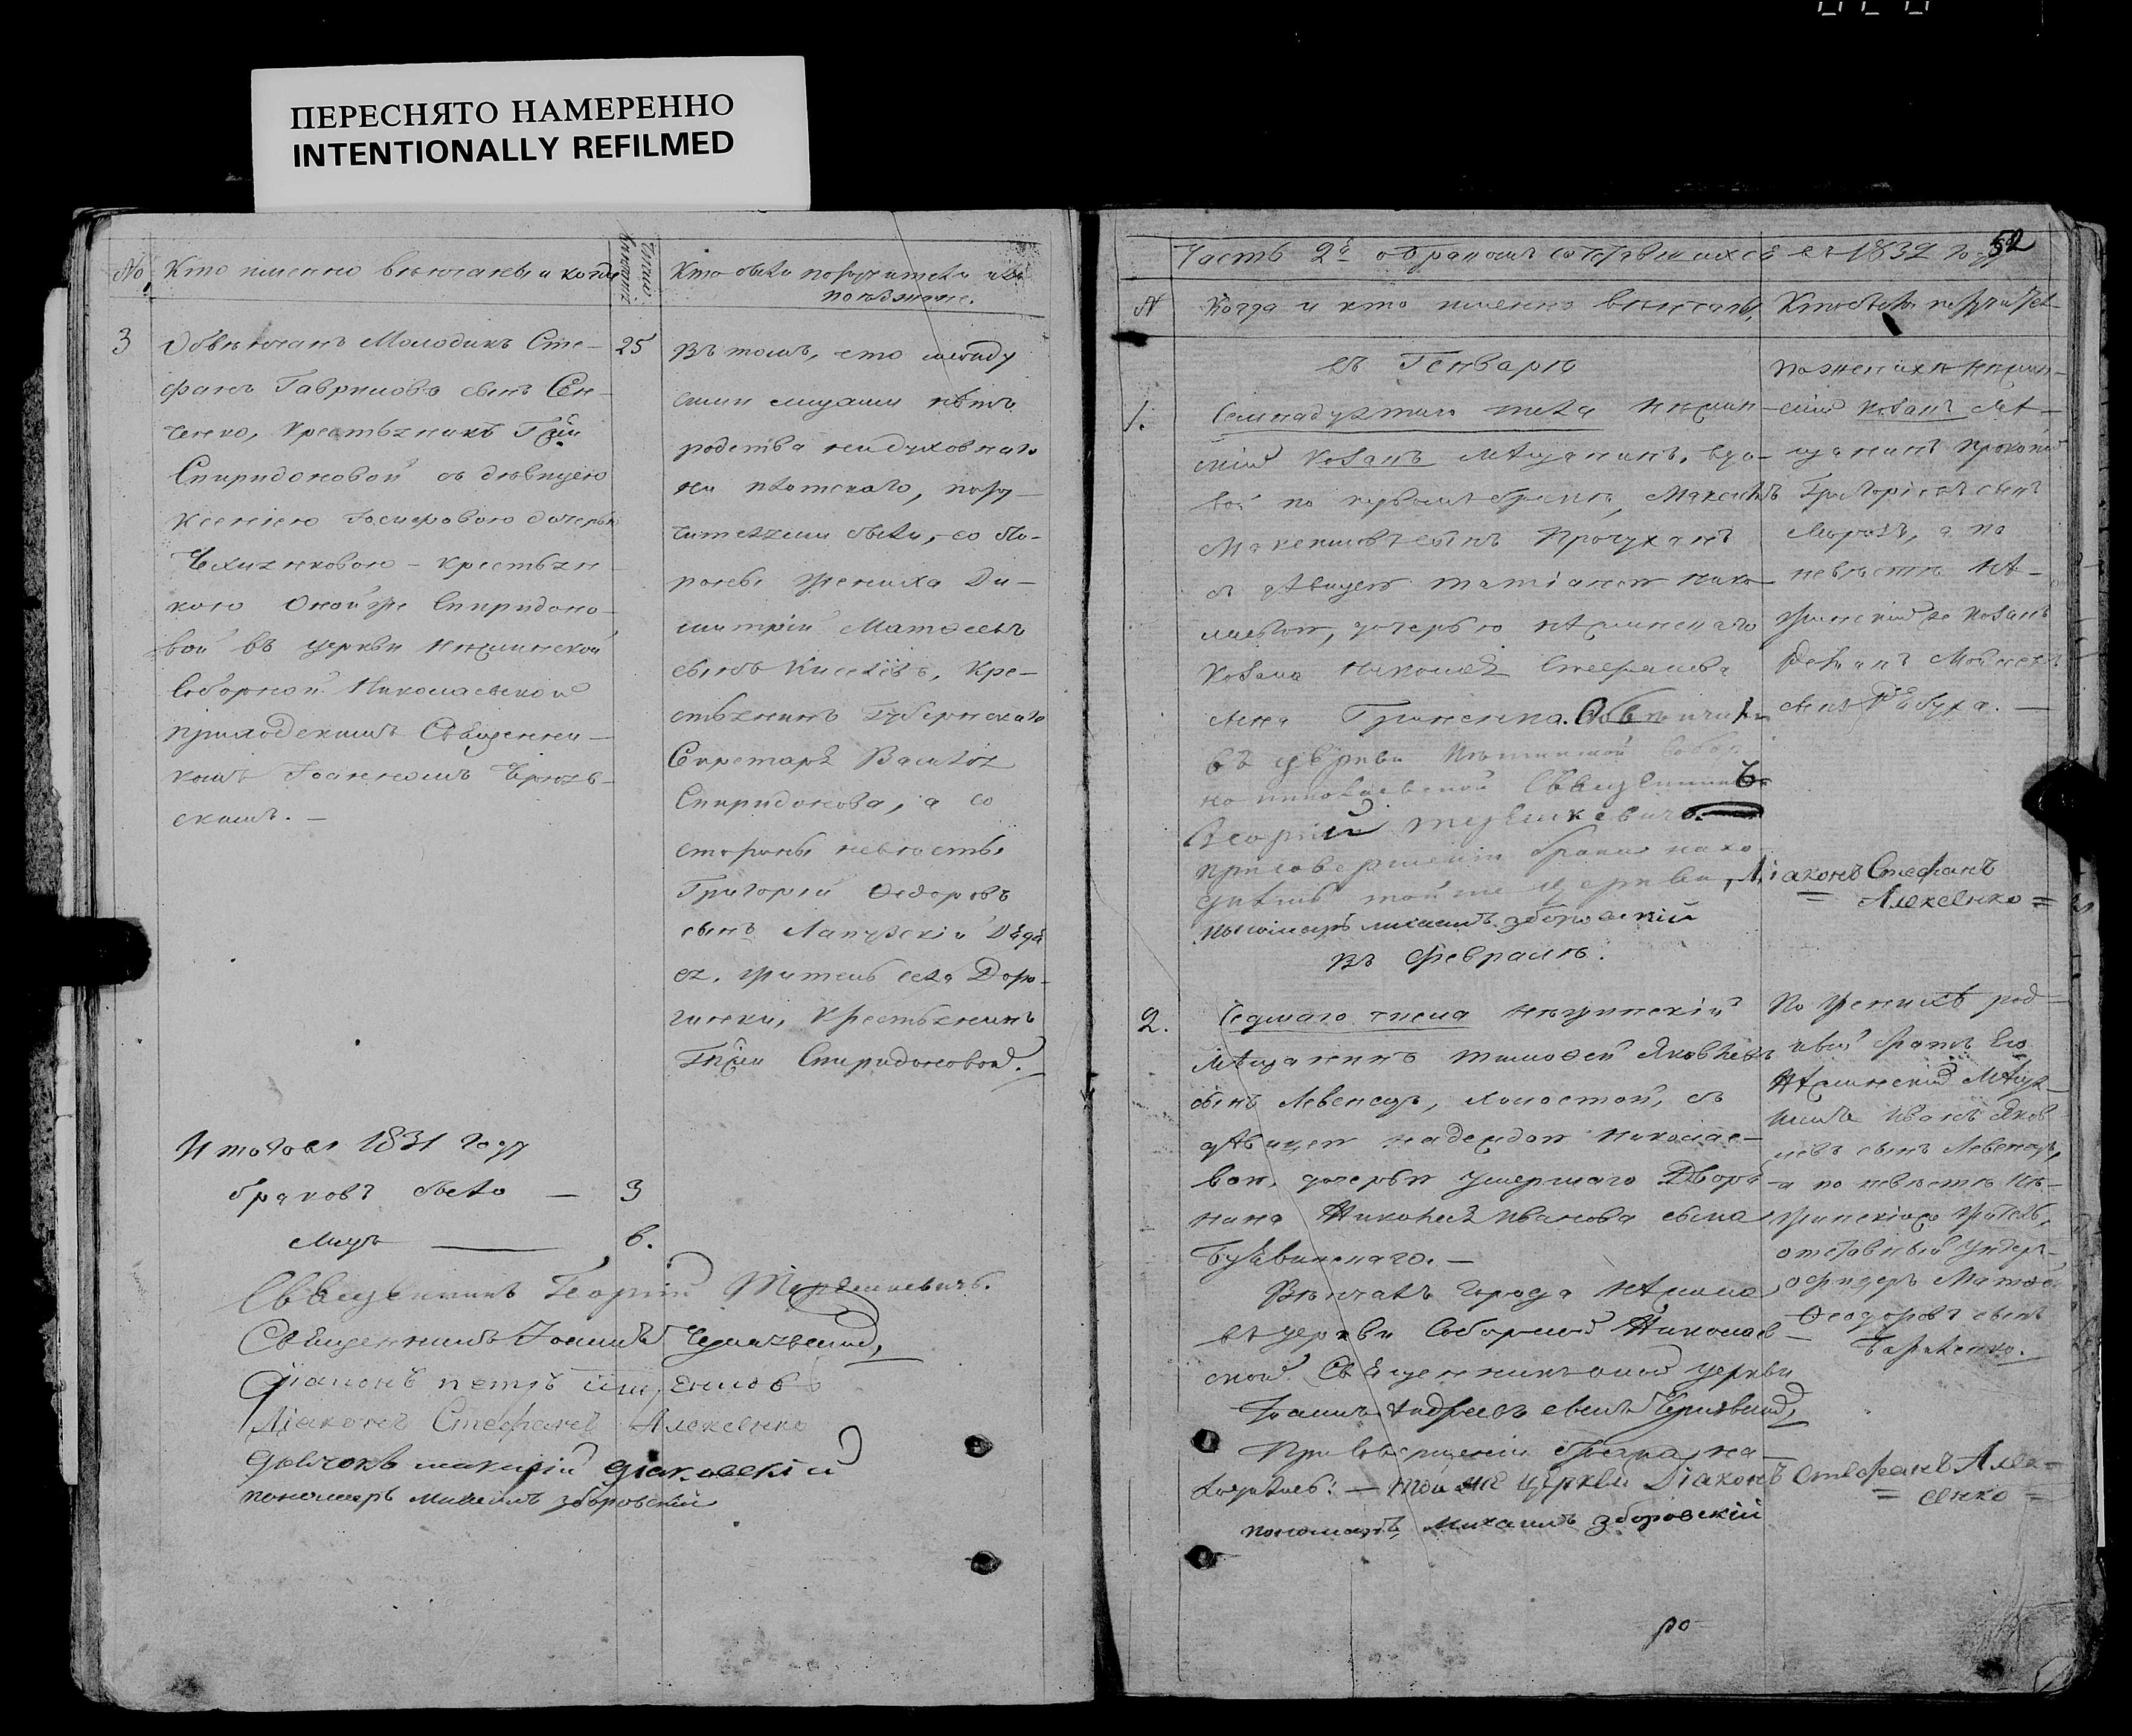 ПЕРЕСНЯТО НАМЕРЕННО
INTENTIONALLY REFILMED
№ Кто именно венчаны и когда
Число
Кто были поручители или
поезжане.
3
Обвѣнчанъ Молодикъ Сте-
фанъ Гавриловъ сынъ Сен-
ченко, Крестьянинъ Гпжи
Спиридоновой съ дѣвицею
Ксеніею Іосифовою дочерью
крестьян-
кою оной же Спиридоно-
вой въ церкви Нѣжинской
Соборной Николаевской
приходскимъ Священни-
комъ Іоанномъ
скимъ. —
25
Въ томъ, что между
сими лицами нѣтъ
родства ни духовнаго
ни плотскаго, пору-
чителями были, со сто-
роны жениха Ди-
митрій Матѳеевъ
сынъ Киселевъ, Кре-
стьянинъ Губернскаго
Секретаря Василія
Спиридонова, а со
стороны невѣсты
Григорій Ѳедоровъ
сынъ
житель села Доро-
гинки, Крестьянинъ
Гпжи Спиридоновой.
Итого въ 1831 году
браковъ было — 3
лицъ — 6.
Священникъ Георгій
Священникъ Іоаннъ
Діаконъ Петръ
Діаконъ Стефанъ Алексенко
дьячокъ
пономарь Михаилъ Зборовскій
52
Часть 2я о бракомъ сочетавшихся въ 1832 году
№ Когда и кто именно вѣнчаны, Кто были поручител-
въ Генварѣ
1.
Семнадцатаго числа Нѣжин-
скій Козакъ Мѣщанинъ, вдо-
вой по первомъ бракѣ, Максимъ
Максимовъ сынъ
съ дѣвицею Татіаною Нико-
лаевою, дочерью Нѣжинскаго
Козака Николая Стефанова
сына Гриненка. Обвѣнчаны
въ церкви Нѣжинской Собор-
но Николаевской Священникъ
Георгій
при совершеніи брака нахо-
дились той же церкви, Діаконъ Стефанъ
= Алексенко =
пономарь Михаилъ Зборовскій
по женихѣ Нѣжин-
скій Козакъ Мѣ-
щанинъ Прокопій
Григоріевъ сынъ
Морозъ, а по
невѣстѣ Нѣ-
жинскій же Козакъ
сынъ Рябуха. —
въ Февралѣ.
2.
Седмаго числа Нѣжинскій
Мѣщанинъ Тимоѳей Яковлевъ
сынъ Левенецъ, холостой, съ
дѣвицею Надеждою Николае-
вою, дочерью умершаго Дворя-
нина Николая Иванова сына
Вѣнчанъ города Нѣжина
въ церкви Соборной Николаев-
ской Священникъ оной церкви
Іоаннъ Андреевъ сынъ
При совершеніи брака на-
ходились: — той же церкви Діаконъ Стефанъ Алек-
= сенко =
пономарь, Михаилъ Зборовскій
По женихѣ род-
ный братъ Его
Нѣжинскій Мѣща-
нинъ Иванъ Яков-
левъ сынъ Левенецъ,
а по невѣстѣ Нѣ-
жинскій житель,
отставный унтеръ-
офицеръ Матѳей
Ѳеодоровъ сынъ
ро